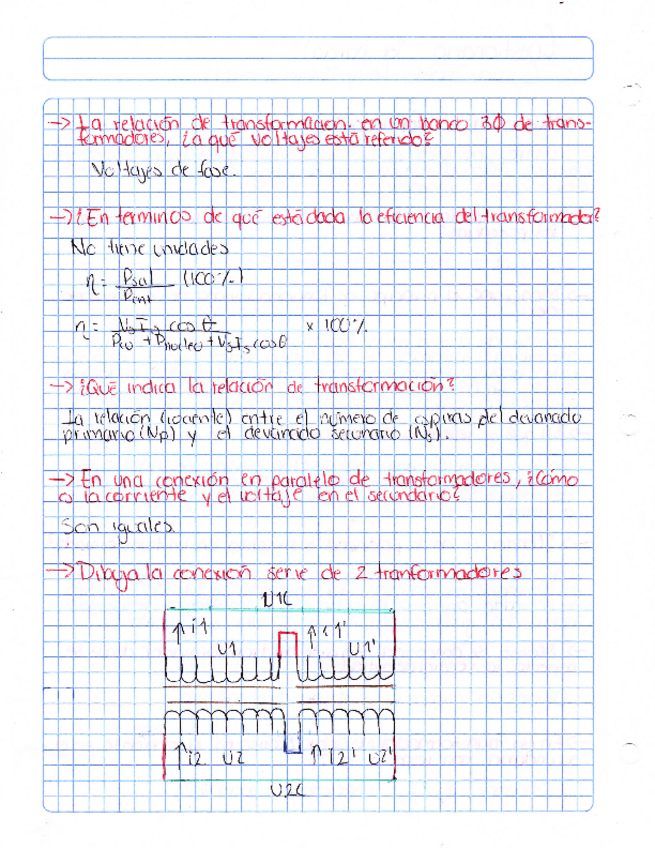 → La relación de transformación. en un banco 3Φ de trans-
formadores, ¿a qué voltajes está referido?
Voltajes de fase.
→ ¿En terminos de qué está dada la eficiencia del transformador?
No tiene unidades
η = Psal / Pent (100%)
η = VsIs cos θ / Pcu + Pnúcleo + VsIs cos θ × 100%
→ ¿Qué indica la relación de transformación?
La relación (cociente) entre el número de espiras del devanado
primario (Np) y el devanado secundario (Ns).
→ En una conexión en paralelo de transformadores, ¿Cómo
o la corriente y el voltaje en el secundario?
Son iguales.
→ Dibuja la conexión serie de 2 tranformadores
U1C
i1 U1 i1' U1'
i2 U2 I2' U2'
U2C